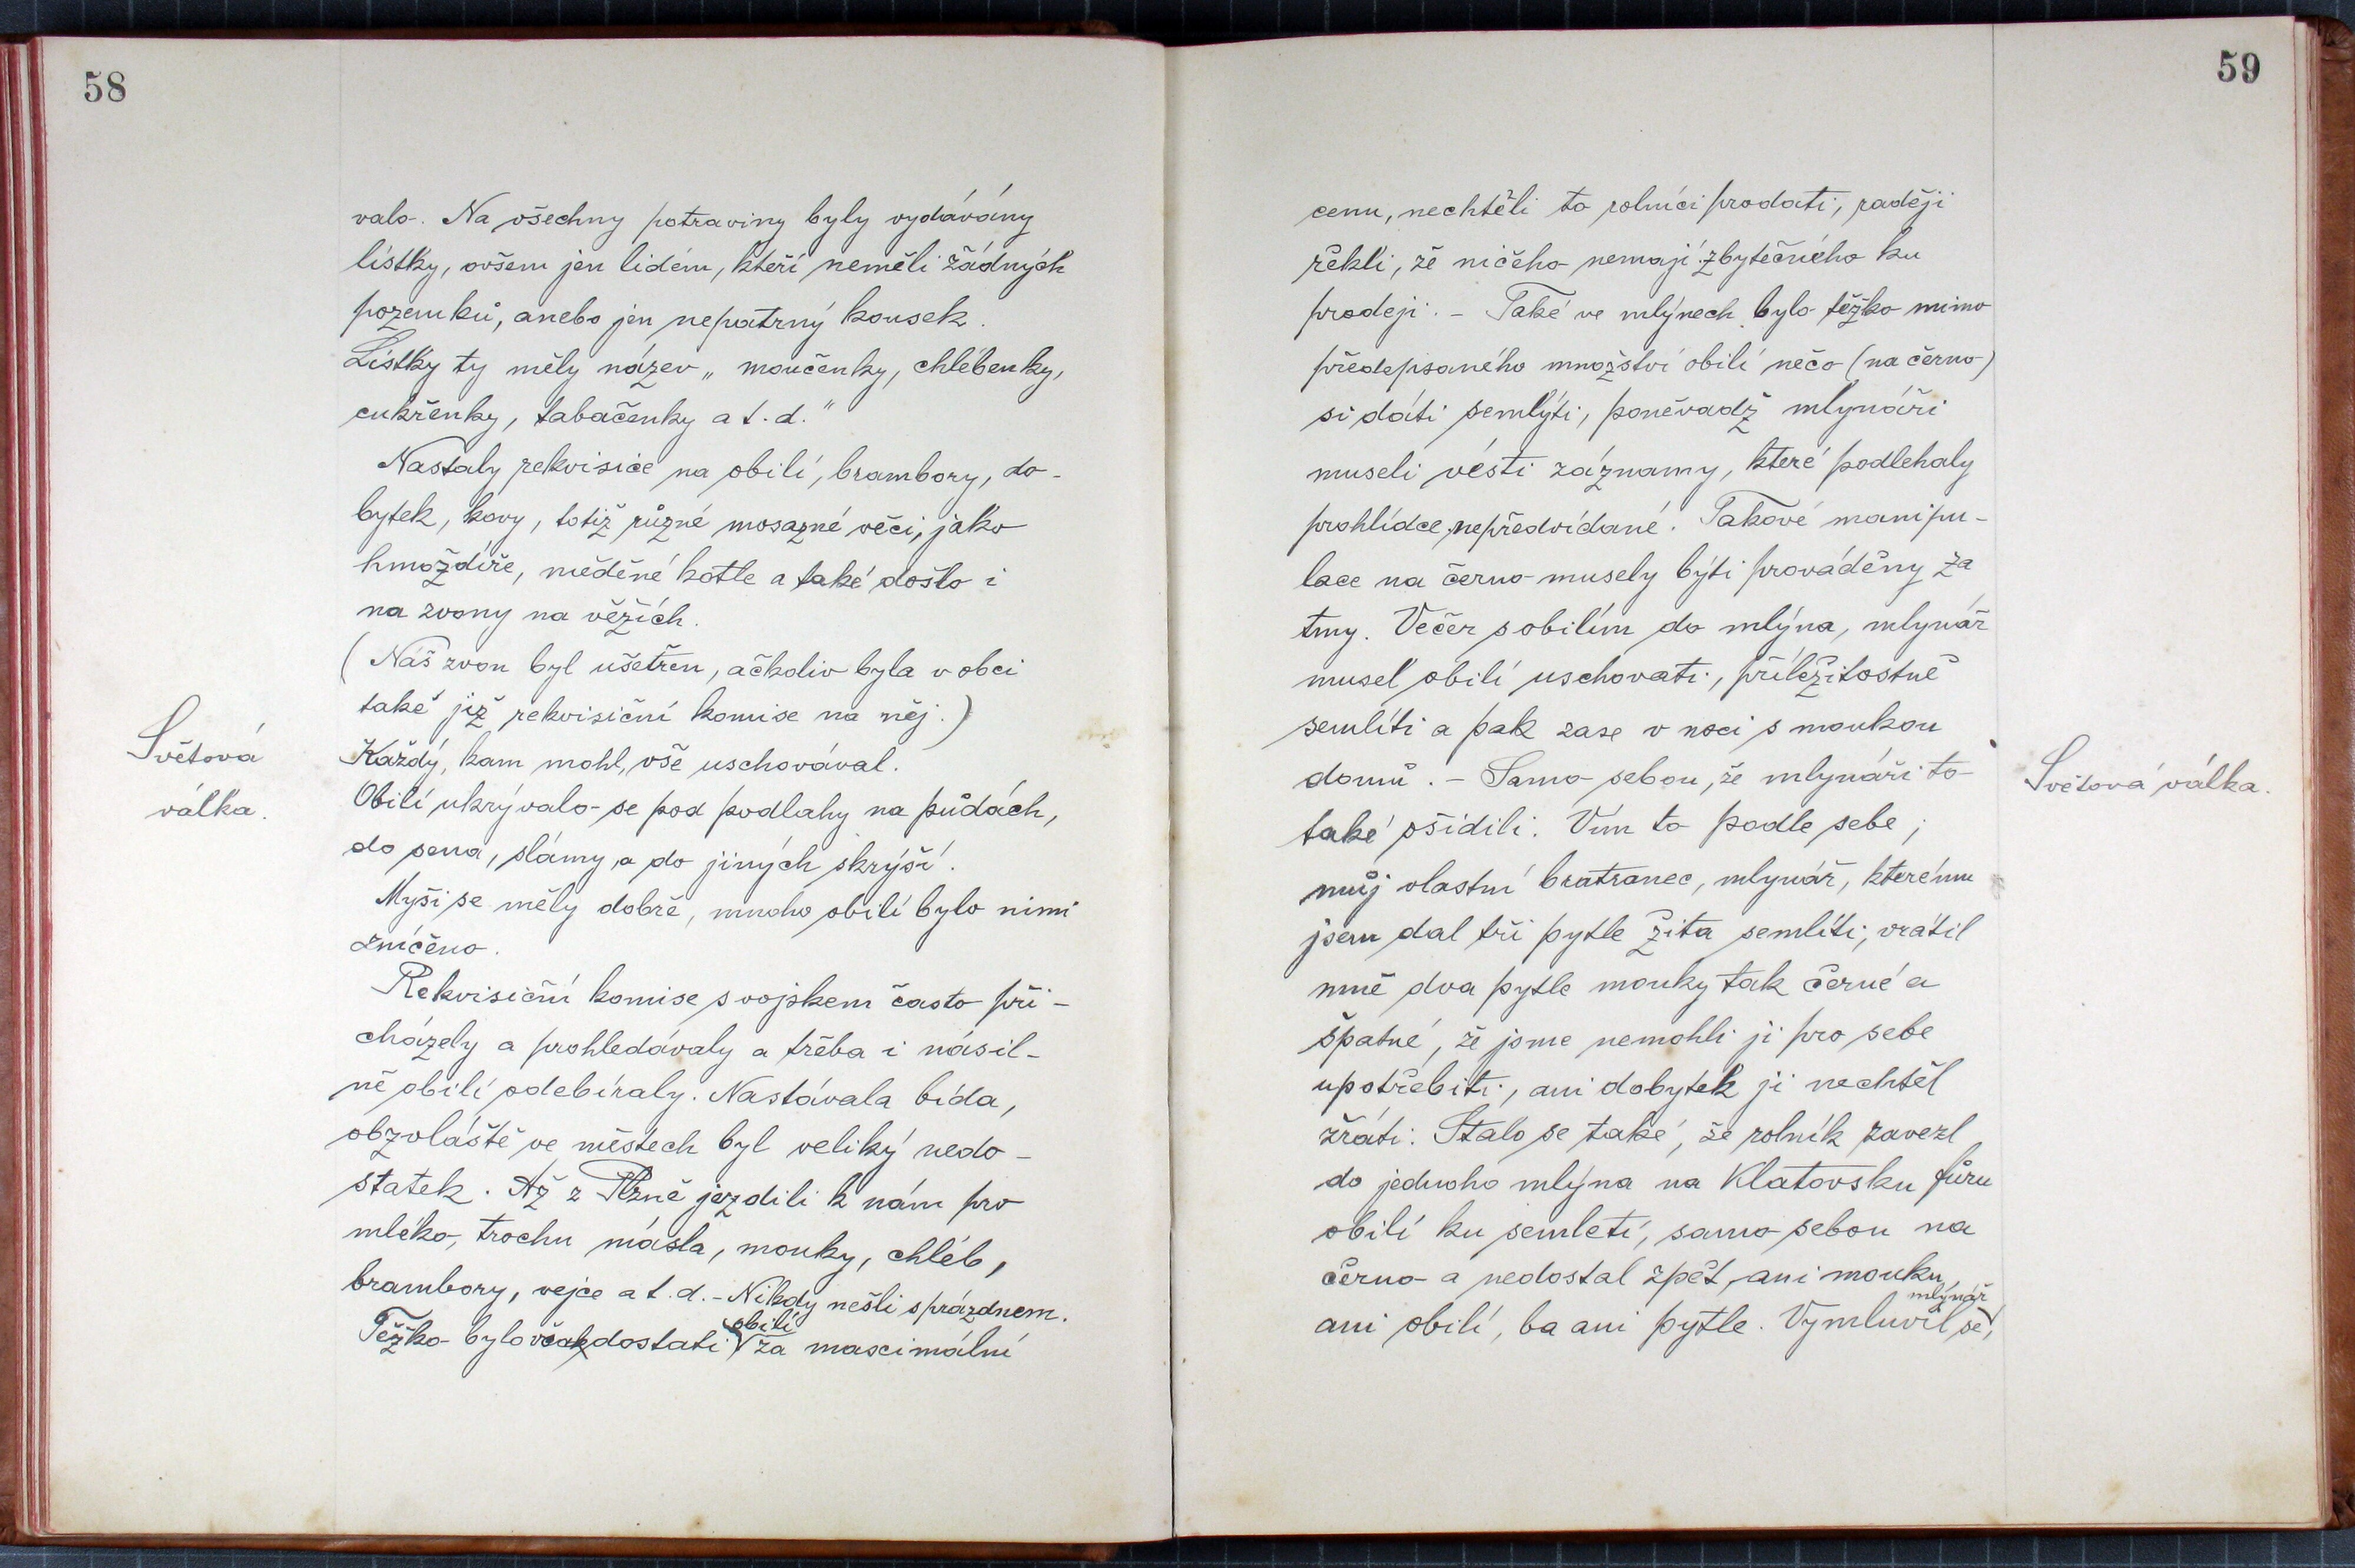 58
valo. Na všechny potraviny byly vydávány
lístky, ovšem jen lidem, kteří neměli žádných
pozemků, anebo jen nepatrný kousek.
Lístky ty měly název „moučenky, chlébenky,
cukřenky, tabačenky a t. d."
Nastaly rekvisice na obilí, brambory, do-
bytek, kovy, totiž různé mosazné věci, jako
hmoždíře, měděné kotle a také došlo i
na zvony na věžích.
(Náš zvon byl ušetřen, ačkoliv byla v obci
také již rekvisiční komise na něj.)
Světová
válka.
Každý, kam mohl, vše uschovával.
Obilí ukrývalo se pod podlahy na půdách,
do sena, slámy, a do jiných skrýší.
Myši se měly dobře, mnoho obilí bylo nimi
zničeno.
Rekvisiční komise s vojskem často při-
cházely a prohledávaly a třeba i násil-
ně obilí odebíraly. Nastávala bída,
obzvláště ve městech byl veliký nedo-
statek. Až z Plzně jezdili k nám pro
mléko, trochu másla, mouky, chléb,
brambory, vejce a t. d. - Nikdy nešli s prázdnem.
Těžko bylo však dostati obilí za maximální
59
cenu, nechtěli to rolníci prodati, raději
řekli, že ničeho nemají zbytečného ku
prodeji. - Také ve mlýnech bylo těžko mimo
předepsaného množství obilí něco (na černo)
si dáti semlýti, poněvadž mlynáři
museli vésti záznamy, které podlehaly
prohlídce nepředvídané. Takové manipu-
lace na černo musely býti prováděny za
tmy. Večer s obilím do mlýna, mlynář
musel obilí uschovati, příležitostně
semlíti a pak zase v noci s moukou
domů. - Samo sebou, že mlynáři to
Světová válka.
také ošidili. Vím to podle sebe;
můj vlastní bratranec, mlynář, kterému
jsem dal tři pytle žita semlíti, vrátil
mně dva pytle mouky tak černé a
špatné, že jsme nemohli ji pro sebe
upotřebiti, ani dobytek ji nechtěl
žráti. Stalo se také, že rolník zavezl
do jednoho mlýna na Klatovsku fůru
obilí ku semletí, samo sebou na
černo a nedostal zpět, ani mouku,
ani obilí, ba ani pytle. Vymluvil se mlýnář,